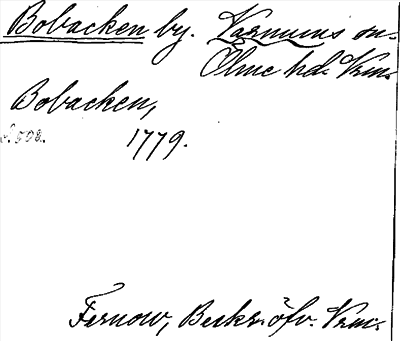 Bobacken by. Varnums sn.
Ölme hd. Vrml.
Bobacken,
s. 508. 1779.
Fernow, Beskr. öfv. Vrml.